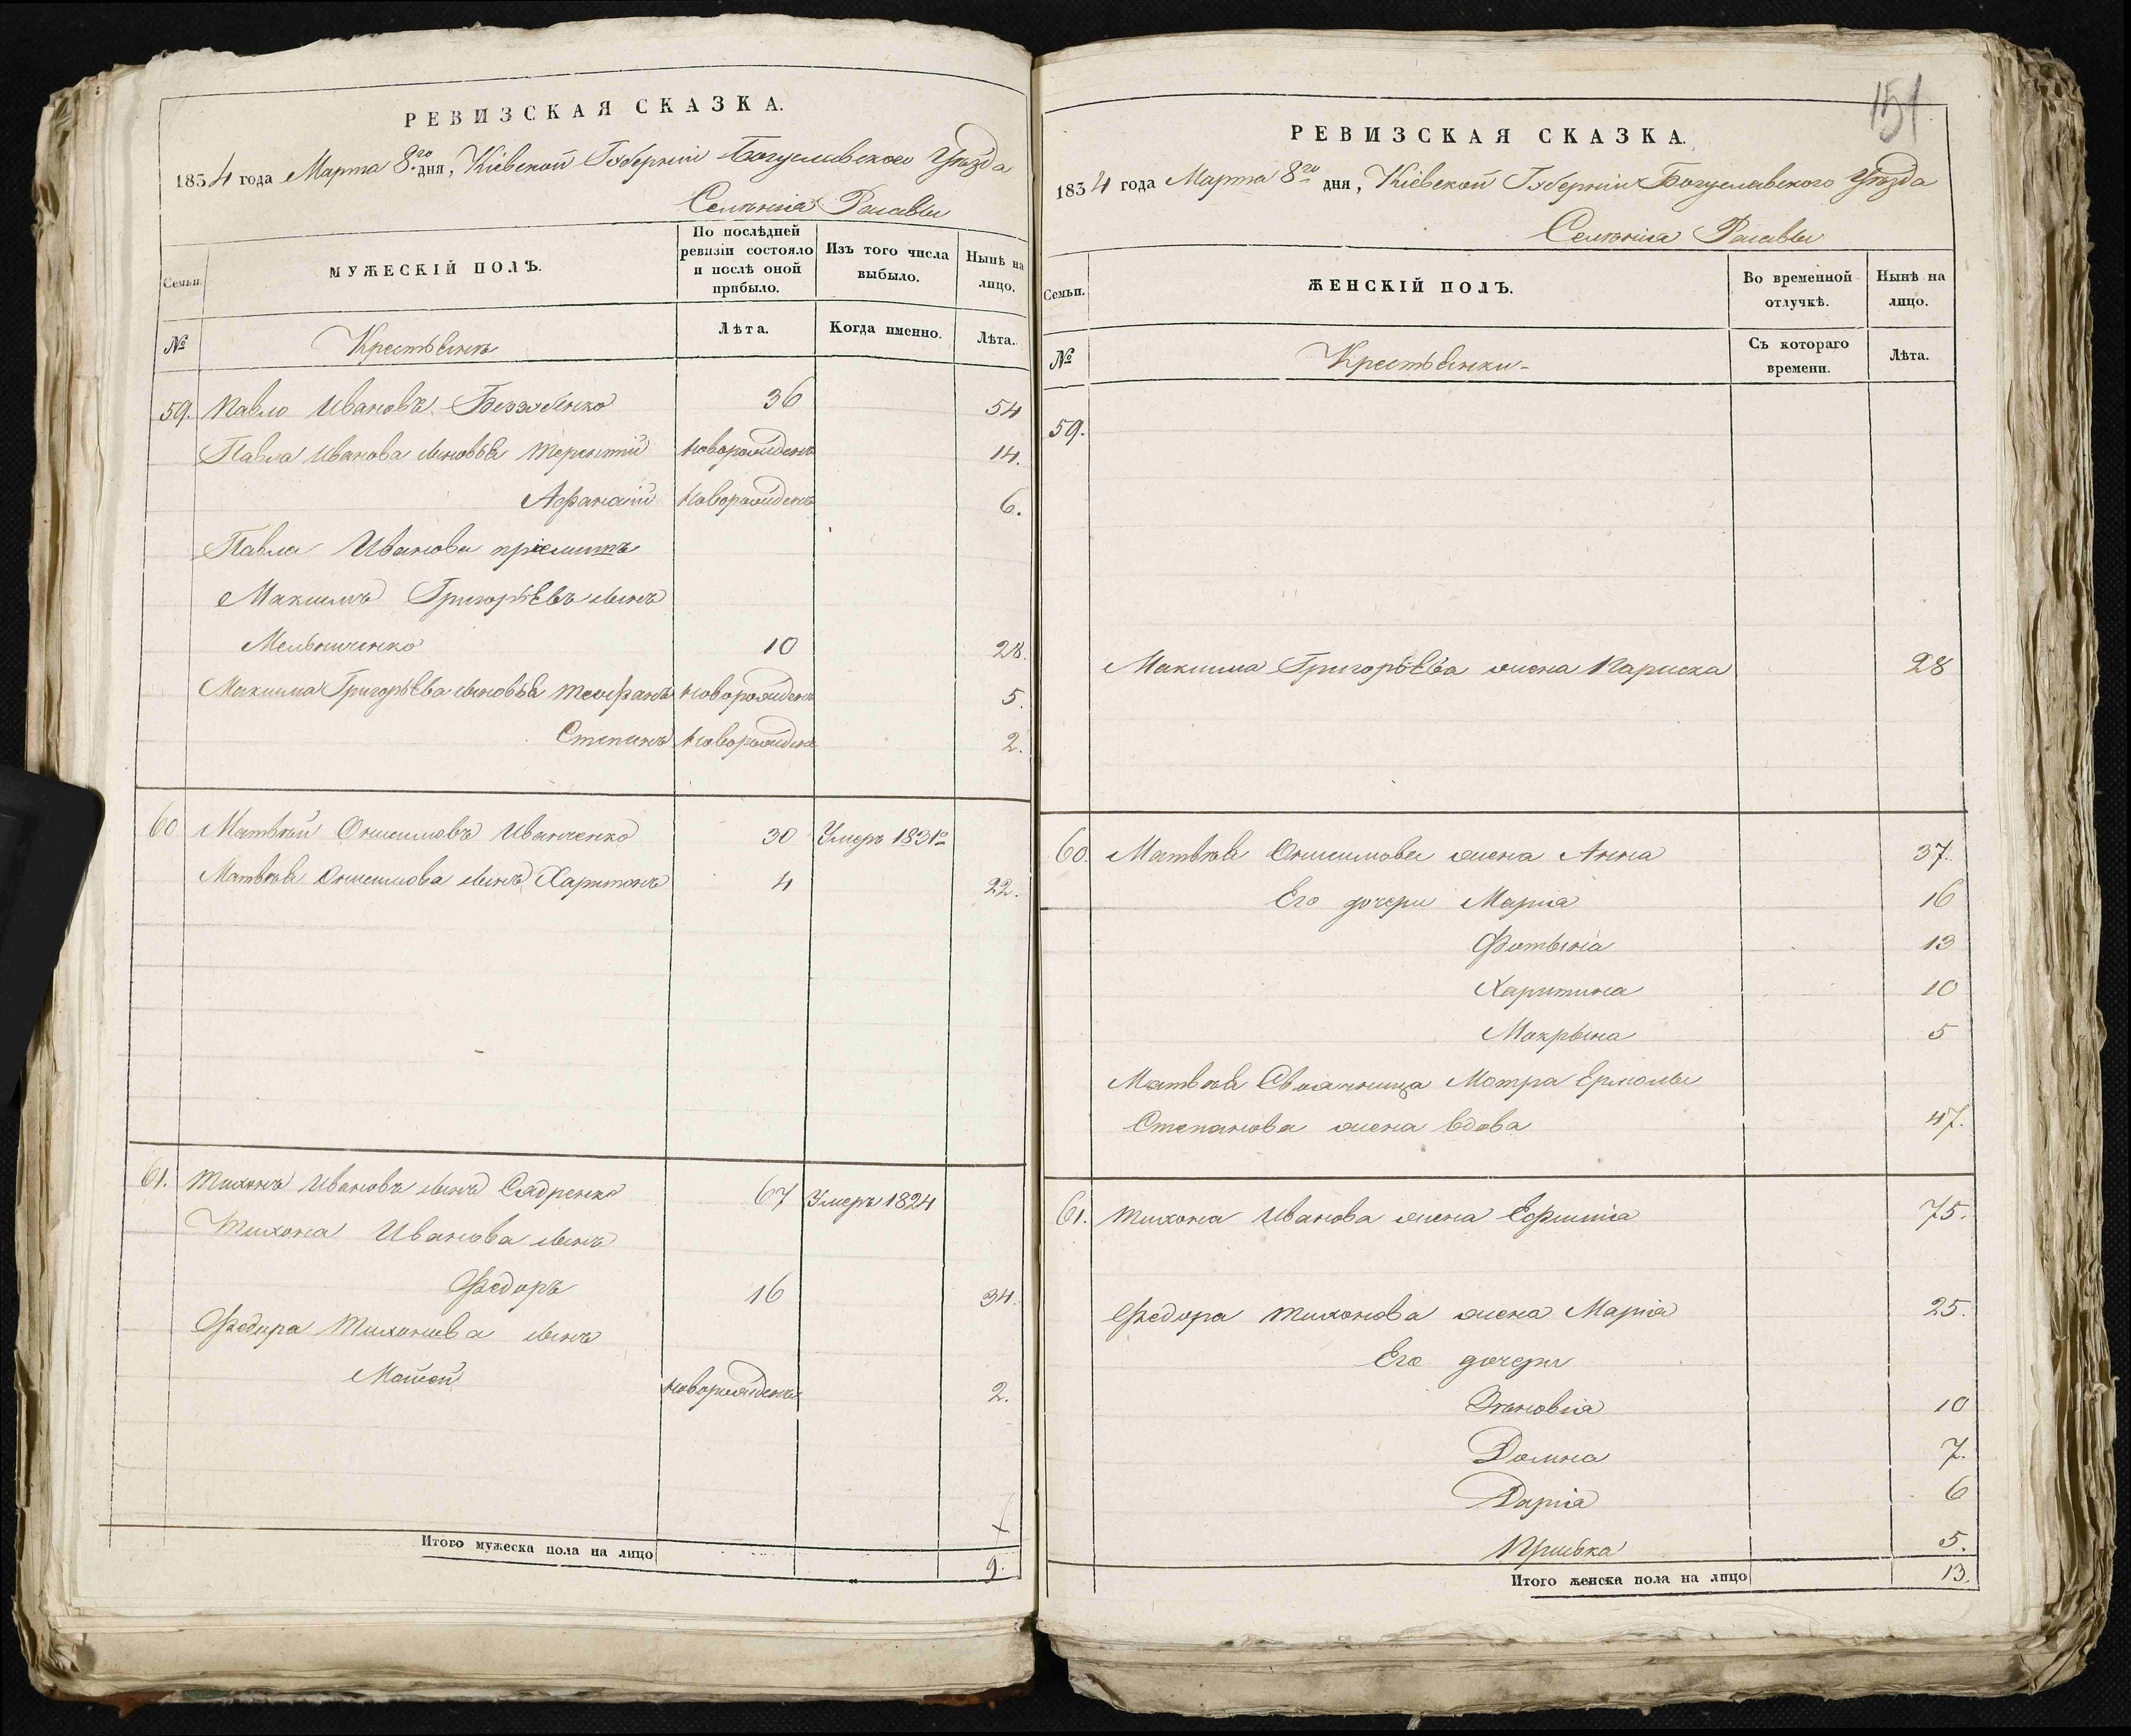 РЕВИЗСКАЯ СКАЗКА.
1834 года Марта 8го дня, Кіевской Губерніи Богуславского Уѣзда
Селенія Росавы
Семьи.
МУЖЕСКІЙ ПОЛЪ.
По послѣдней ревизіи состояло и послѣ оной прибыло.
Изъ того числа выбыло.
Нынѣ на лицо.
№
Крестьянъ
Лѣта.
Когда именно.
Лѣта.
59. Павло Ивановъ 36 54
Павла Иванова сыновья Терентій новорожденъ 14.
Афанасій новорожденъ 6.
Павла Иванова пріемышъ
Максимъ Григорьевъ сынъ
Мельниченко 10 28.
Максима Григорьева сыновья Теофанъ новорожденъ 5.
Степанъ новорожденъ 2.
60 Матвѣй Онисимовъ Иванченко 30 Умеръ 1831го
Матвѣя Онисимова сынъ Харитонъ 4 22.
61. Тихонъ Ивановъ сынъ Сидренко 67 Умеръ 1824
Тихона Иванова сынъ
Федоръ 16 34.
Федора Тихонова сынъ
Мойсей новорожденъ 2.
Итого мужеска пола на лицо 9.
151
РЕВИЗСКАЯ СКАЗКА.
1834 года Марта 8го дня, Кіевской Губерніи Богуславского Уѣзда
Селенія Росавы
Семьи.
ЖЕНСКІЙ ПОЛЪ.
Во временной отлучкѣ.
Нынѣ на лицо.
№
Крестьянки
Съ котораго времени.
Лѣта.
59.
Максима Григорьева жена Параска 28
60. Матвѣя Онисимова жена Анна 37.
Его дочери Марія 16
Фотынія 13
Харитина 10
Мокрына 5
Матвѣя Своячница Мотра Ермолы
Степанова жена вдова 47.
61. Тихона Иванова жена Ефимія 75.
Федора Тихонова жена Марія 25.
Его дочери
Зѣновія 10
Домна 7.
Дарія 6
Приська 5.
Итого женска пола на лицо 13.